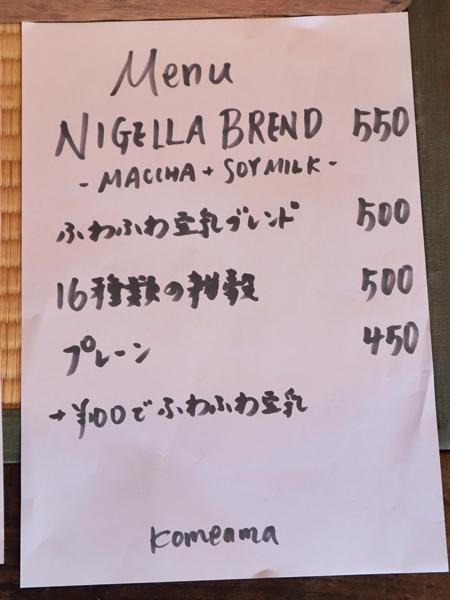 Menu
NIGELLA BREND 550
- MACCHA + SOYMILK -
ふわふわ豆乳ブレンド 500
16種類の雑穀 500
プレーン 450
+¥100でふわふわ豆乳
komeama